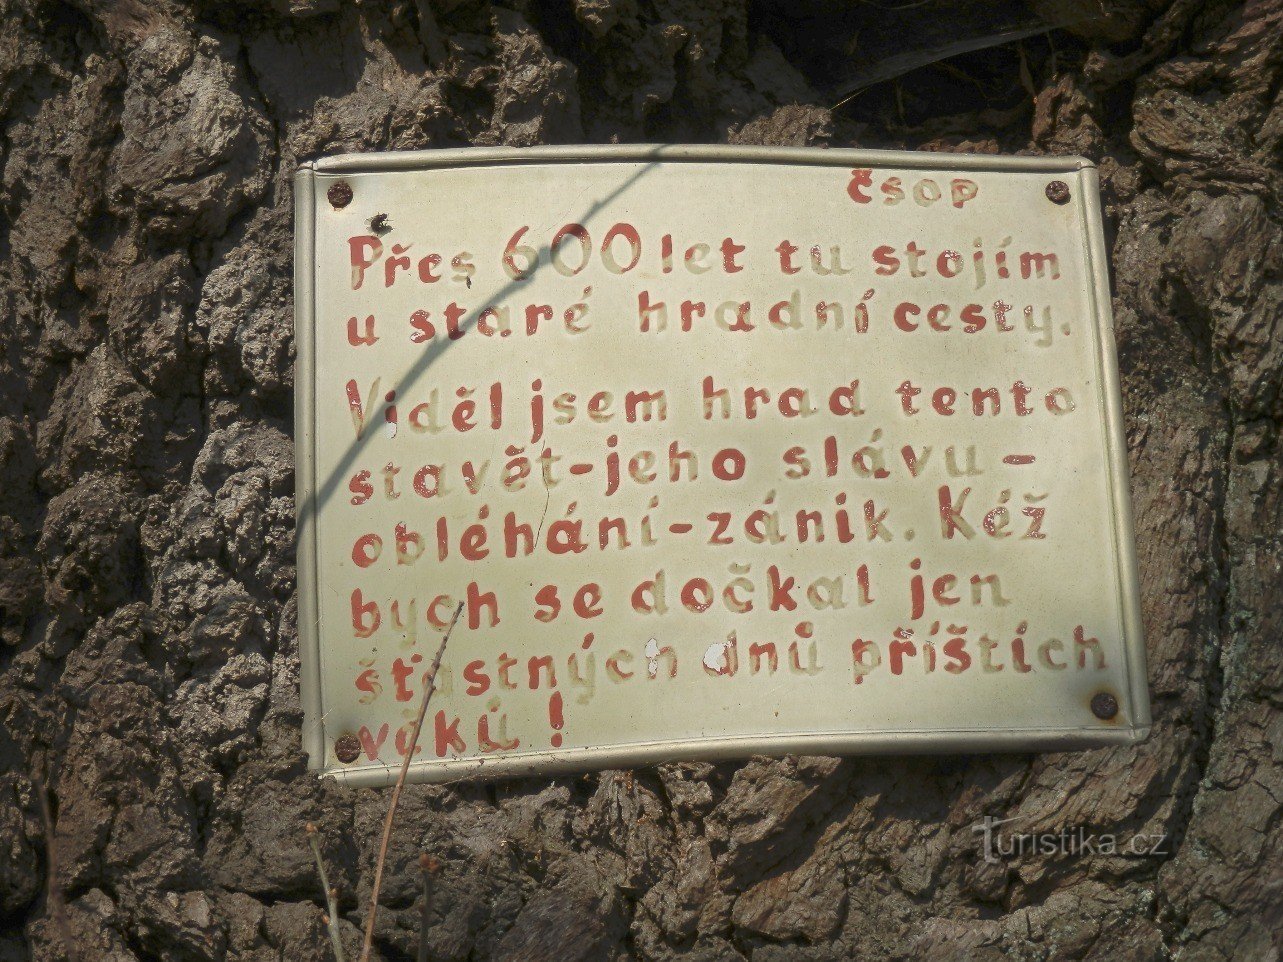 ČSOP
Přes 600 let tu stojím
u staré hradní cesty.
Viděl jsem hrad tento
stavět-jeho slávu-
obléhání-zánik. Kéž
bych se dočkal jen
šťastných dnů příštích
věků!
Turistika.cz